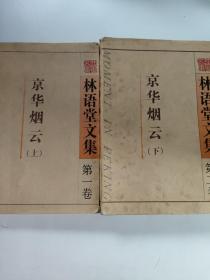 林语堂文集
第一卷
京华烟云
(上)
林语堂文集
第二卷
京华烟云
(下)
MOMENT IN PEKING